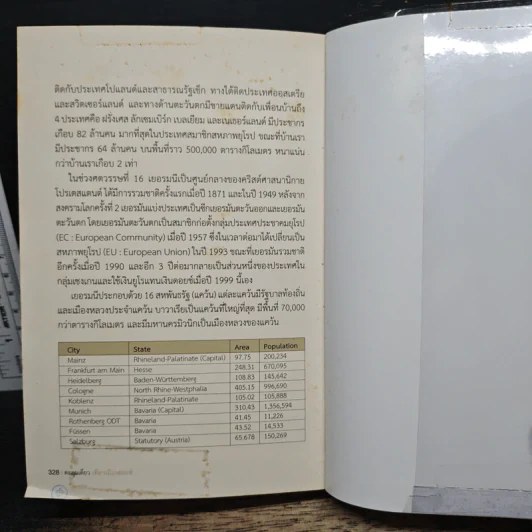 ติดกับประเทศโปแลนด์และสาธารณรัฐเช็ก ทางใต้ติดประเทศออสเตรีย
และสวิตเซอร์แลนด์ และทางด้านตะวันตกมีชายแดนติดกับเพื่อนบ้านถึง
4 ประเทศคือ ฝรั่งเศส ลักเซมเบิร์ก เบลเยียม และเนเธอร์แลนด์ มีประชากร
เกือบ 82 ล้านคน มากที่สุดในประเทศสมาชิกสหภาพยุโรป ขณะที่บ้านเรา
มีประชากร 64 ล้านคน บนพื้นที่ราว 500,000 ตารางกิโลเมตร หนาแน่น
กว่าบ้านเราเกือบ 2 เท่า
ในช่วงศตวรรษที่ 16 เยอรมนีเป็นศูนย์กลางของคริสต์ศาสนานิกาย
โปรเตสแตนต์ ได้มีการรวมชาติครั้งแรกเมื่อปี 1871 และในปี 1949 หลังจาก
สงครามโลกครั้งที่ 2 เยอรมันแบ่งประเทศเป็นซีกเยอรมันตะวันออกและเยอรมัน
ตะวันตก โดยเยอรมันตะวันตกเป็นสมาชิกก่อตั้งกลุ่มประเทศประชาคมยุโรป
(EC : European Community) เมื่อปี 1957 ซึ่งในเวลาต่อมาได้เปลี่ยนเป็น
สหภาพยุโรป (EU : European Union) ในปี 1993 ขณะที่เยอรมันรวมชาติ
อีกครั้งเมื่อปี 1990 และอีก 3 ปีต่อมากลายเป็นส่วนหนึ่งของประเทศใน
กลุ่มเชงเกนและใช้เงินยูโรแทนเงินดอยช์เมื่อปี 1999 นี้เอง
เยอรมนีประกอบด้วย 16 สหพันธรัฐ (แคว้น) แต่ละแคว้นมีรัฐบาลท้องถิ่น
และเมืองหลวงประจำแคว้น บาวาเรียเป็นแคว้นที่ใหญ่ที่สุด มีพื้นที่ 70,000
กว่าตารางกิโลเมตร และมีมหานครมิวนิกเป็นเมืองหลวงของแคว้น
City State Area Population
Mainz Rhineland-Palatinate (Capital) 97.75 200,234
Frankfurt am Main Hesse 248.31 670,095
Heidelberg Baden-Württemberg 108.83 145,642
Cologne North Rhine-Westphalia 405.15 996,690
Koblenz Rhineland-Palatinate 105.02 105,888
Munich Bavaria (Capital) 310.43 1,356,594
Rothenberg ODT Bavaria 41.45 11,226
Füssen Bavaria 43.52 14,533
Salzburg Statutory (Austria) 65.678 150,269
328